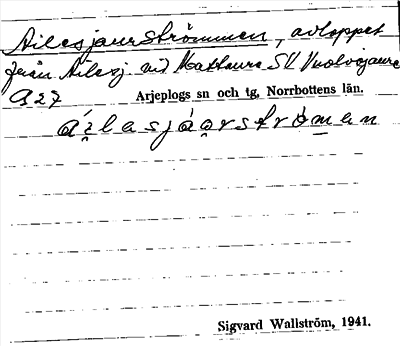 Ailesjaurströmmen, avloppet
från Ailesj vid Mattaure SV Vuolvojaure
A27 Arjeplogs sn och tg, Norrbottens län.
a i l a s j à a r s t r ö m e n
Sigvard Wallström, 1941.